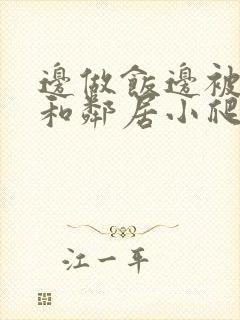 邊做飯邊被
和鄰居小爬
江一平